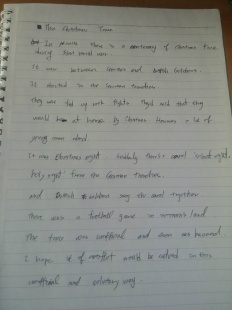 ■ The Christmas Truce
In ... there is a ceremony of Christmas Truce
during that world war.
It was between German and British Soldiers.
It started in the German trenches
They are fed up with fights and that they
would be at home. By Christmas However a lot of
young men died.
In the Christmas night, suddenly there's a carol "silent night,
holy night" from the German trenches.
and British soldiers sang the carol together.
There was a football game in no-man's land.
The truce was unofficial and
I hope of conflict would be solved in this
unofficial and voluntary way.